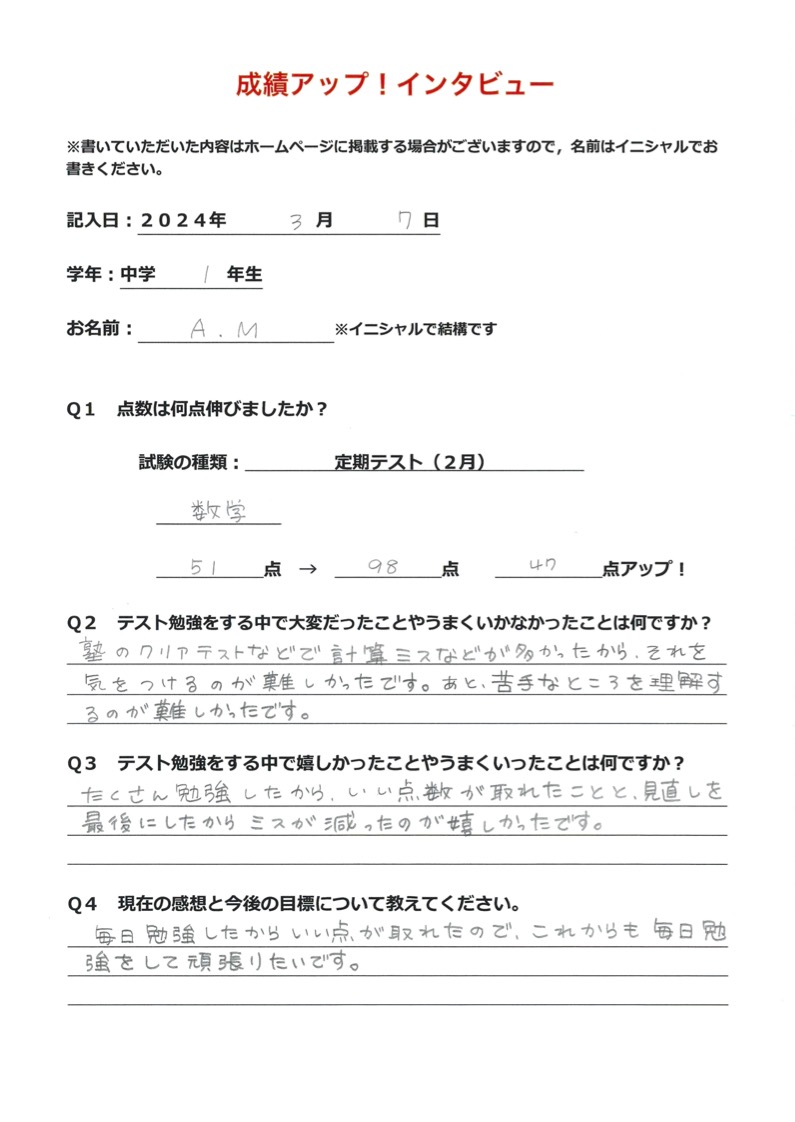 成績アップ！インタビュー
※書いていただいた内容はホームページに掲載する場合がございますので，名前はイニシャルでお
書きください。
記入日：２０２４年 3 月 7 日
学年：中学 1 年生
お名前： A.M ※イニシャルで結構です
Ｑ１ 点数は何点伸びましたか？
試験の種類： 定期テスト（２月）
数学
51 点 → 98 点 47 点アップ！
Ｑ２ テスト勉強をする中で大変だったことやうまくいかなかったことは何ですか？
塾のクリアテストなどで計算ミスなどが多かったから、それを
気をつけるのが難しかったです。あと、苦手なところを理解す
るのが難しかったです。
Ｑ３ テスト勉強をする中で嬉しかったことやうまくいったことは何ですか？
たくさん勉強したから、いい点数が取れたことと、見直しを
最後にしたからミスが減ったのが嬉しかったです。
Ｑ４ 現在の感想と今後の目標について教えてください。
毎日勉強したからいい点が取れたので、これからも毎日勉
強をして頑張りたいです。